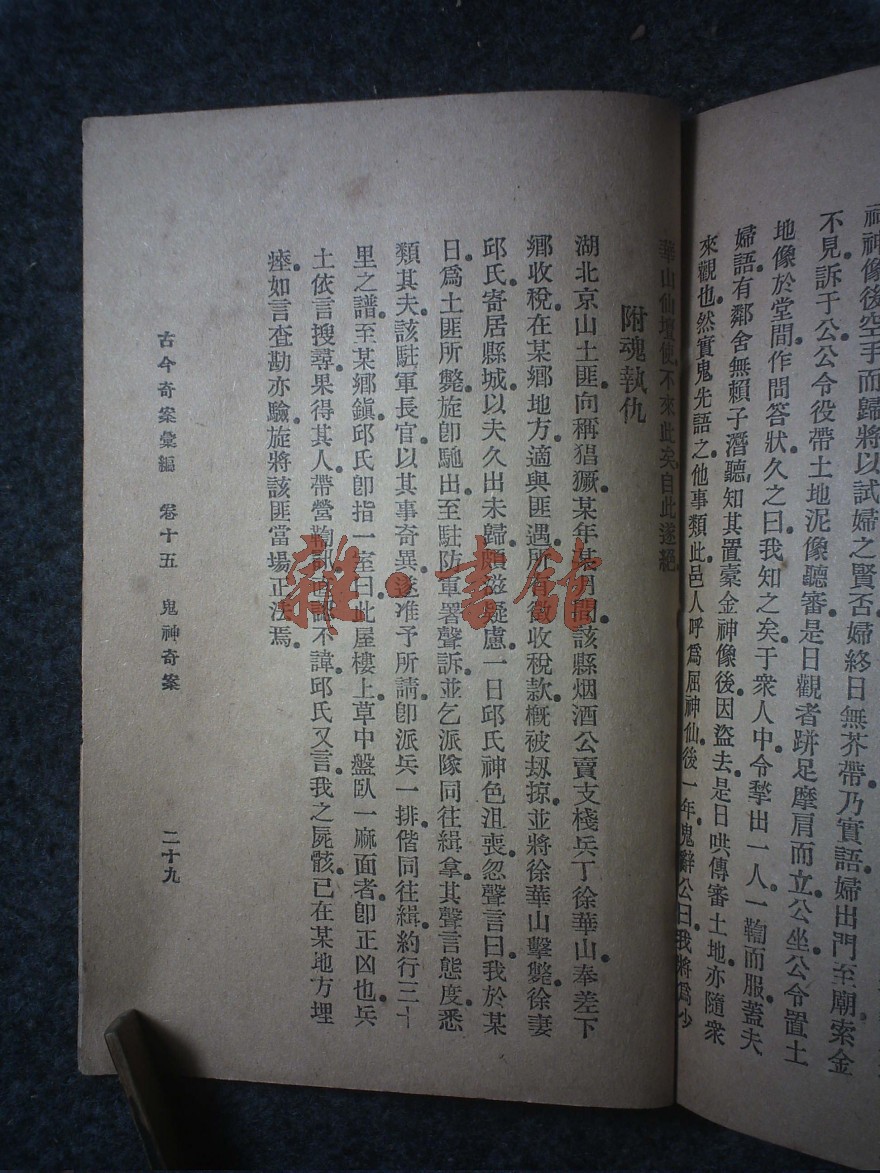 祠神像後空手而歸將以試婦之賢否婦終日無芥帶乃實語婦出門至廟索金
不見訴于公公令役帶土地泥像聽審是日觀者跰足摩肩而立公坐公令置土
地像於堂間作問答狀久之曰我知之矣于衆人中令拏出一人一鞫而服蓋夫
婦語有鄰舍無賴子潛聽知其置豪金神像後因盜去是日哄傳審土地亦隨衆
來觀也然實鬼先語之他事類此邑人呼爲屈神仙後一年鬼辭公曰我將爲少
華山仙壇使不來此矣自此遂絕
附魂執仇
湖北京山土匪向稱猖獗某年某月間該縣烟酒公賣支棧兵丁徐華山奉差下
鄉收稅在某鄉地方適與匪遇所有徵收稅款概被刼掠並將徐華山擊斃徐妻
邱氏寄居縣城以夫久出未歸頗滋疑慮一日邱氏神色沮喪忽聲言曰我於某
日爲土匪所斃旋卽馳出至駐防軍署聲訴並乞派隊同往緝拿其聲言態度悉
類其夫該駐軍長官以其事奇異遂准予所請卽派兵一排偕同往緝約行三十
里之譜至某鄉鎭邱氏卽指一室曰此屋樓上草中盤臥一麻面者卽正凶也兵
土依言搜尋果得其人帶營鞫訊直認不諱邱氏又言我之屍骸已在某地方埋
瘞如言查勘亦驗旋將該匪當場正法焉
古今奇案彙編 卷十五 鬼神奇案 二十九
雜·書館